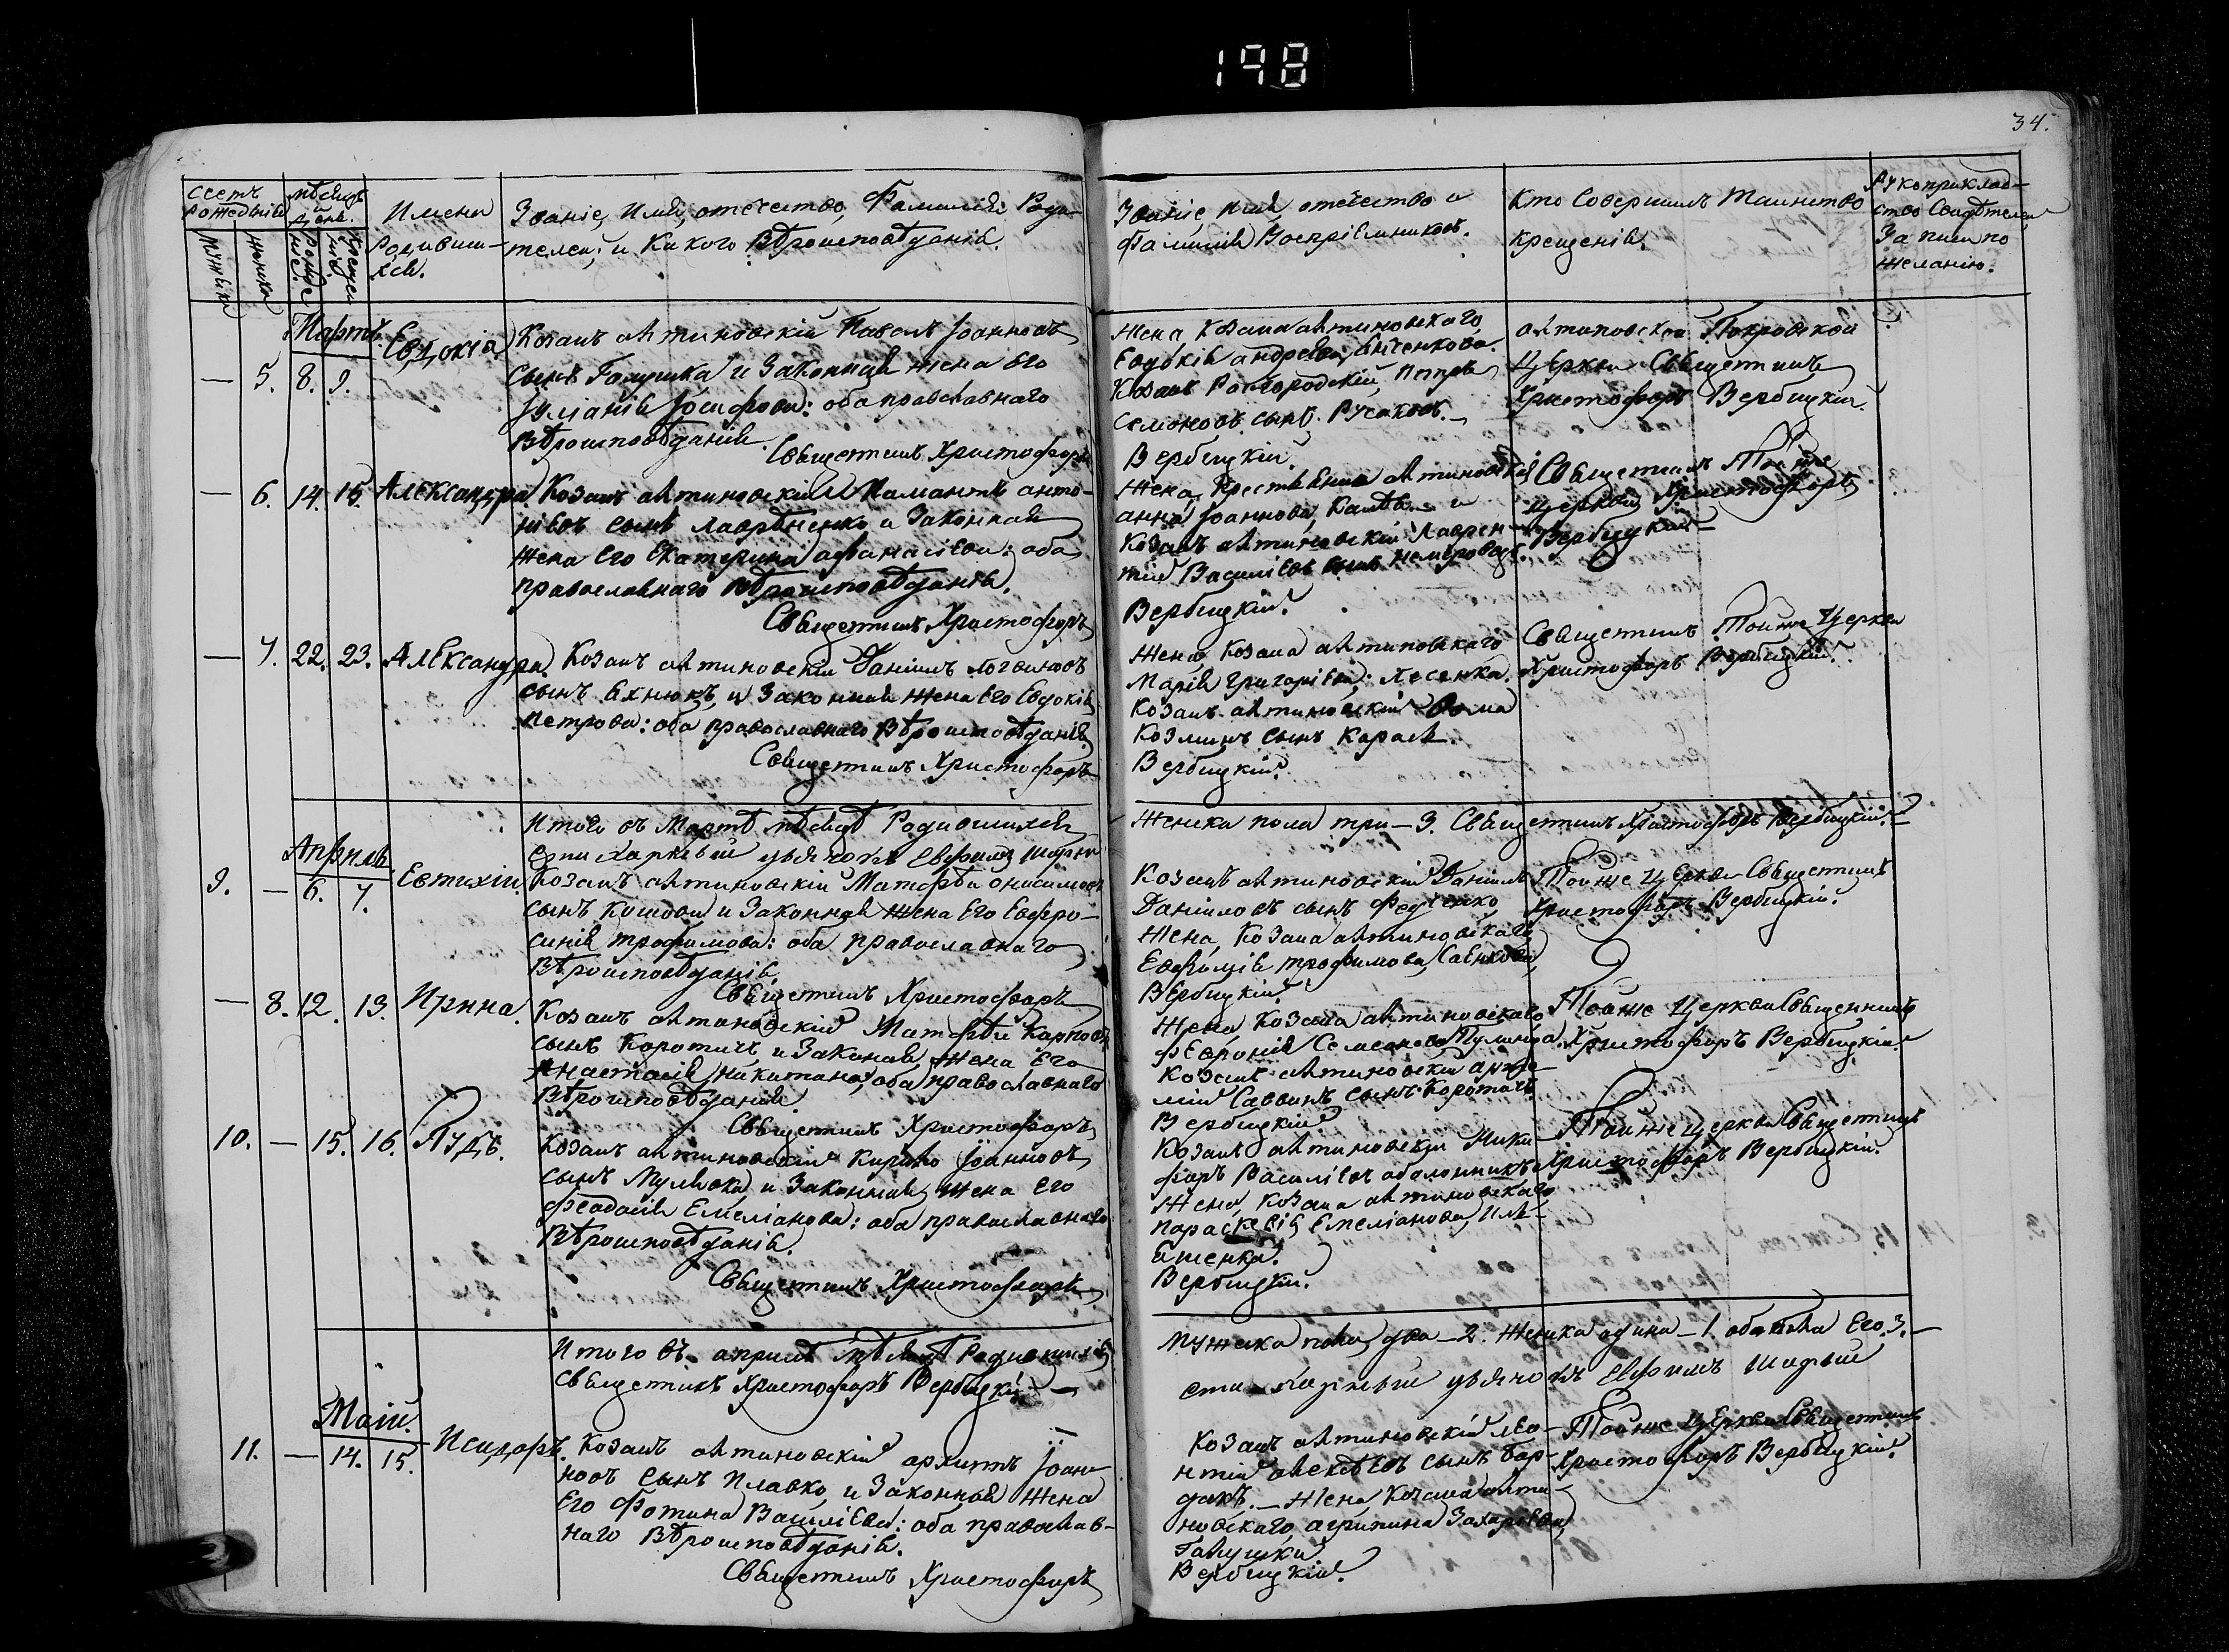 198
34.
Счетъ рожденій
Мужска
Женска
Мѣсяцъ и день.
Рожденіе.
Крещенія
Имена Родивших-
хся.
Званіе, Имя, отечество, Фамилія Роди-
телей; и Какого Вѣроисповѣданія.
Званіе, имя, отечество и
фамилія Воспріемниковъ.
Кто Совершилъ Таинство
крещенія.
Рукоприклад-
ство Свидѣтелей
Записи по
желанію.
Мартъ.
— 5. 8. 9. Евдокіа
Козакъ Антиновскій Павелъ Іоанновъ
сынъ Галушка и Законная жена Его
Іуліанія Іосифова: оба православнаго
Вѣроисповѣданія.
Священникъ Христофоръ
Жена Козака Антиновскаго,
Евдокія Андреева,
Козакъ Петръ
Семеновъ сынъ Русаковъ.
Вербицкій.
Антиповской Покровской
Церкви Священникъ
Христофоръ Вербицкій.
— 6. 14. 15. Александра
Козакъ Антиновскій Мамантъ Анто-
ніевъ сынъ Лавриненко и Законная
жена Его Екатерина Афанасіева: оба
православнаго Вѣроисповѣданія.
Священникъ Христофоръ
Жена Антиновская
Анна Іоаннова и
Козакъ Антиновскій Лаврен-
тій Василіевъ сынъ
Вербицкій.
Священникъ Тойже
церкви Христофоръ
Вербицкій
— 7. 22. 23. Александра.
Козакъ Антиновскій Даніилъ Логвиновъ
сынъ и Законная жена Его Евдокія
Петрова: оба православнаго Вѣроисповѣданія.
Священникъ Христофоръ
Жена Козака Антиновскаго
Марія Григоріева; Лесенка.
Козакъ Антиновскій Фома
Козминъ сынъ Карась
Вербицкій.
Священникъ Тойже Церкви
Христофоръ Вербицкій.
Итого въ Мартѣ мѣсяцѣ Родившихся
дьячокъ Евфимъ
Женска пола три — 3. Священникъ Христофоръ Вербицкій.
Апрѣль
9. — 6. 7. Евтихій.
Козакъ Антиновскій Матфѣй Онисимовъ
сынъ Кошова и Законная жена Его Евфро-
синія Трофимова: оба православнаго
Вѣроисповѣданія.
Священникъ Христофоръ
Козакъ Антиновскій Даніилъ
Даніиловъ сынъ Федченко,
Жена Козака Антиновскаго
Евфимія Трофимова Савенкова,
Вербицкій.
Тойже Церкви Священникъ
Христофоръ Вербицкій.
— 8. 12. 13. Ирина.
Козакъ Антиновскій Матфѣй Карповъ
сынъ Коротичъ и Законная жена Его
Анастасія Никитина, оба православнаго
Вѣроисповѣданія.
Священникъ Христофоръ
Жена Козака Антиновскаго
Февронія Семеонова
Козакъ Антиновскій Арте-
мій Саввинъ сынъ Коротичъ
Вербицкій
Тойже Церкви Священникъ
Христофоръ Вербицкій.
10. — 15. 16. Пудъ.
Козакъ Антиновскій Кирило Іоанновъ
сынъ Мулявка и Законная жена Его
Феодосія Емеліанова: оба православнаго
Вѣроисповѣданія.
Священникъ Христофоръ
Козакъ Антиновскій Ники-
форъ Василіевъ Оболонникъ
Жена Козака Антиновскаго
Параскевія Емеліанова Иля-
шенка.
Вербицкій.
Тойже Церкви Священникъ
Христофоръ Вербицкій.
Итого въ Априлѣ мѣсяцѣ Родившихся
Священникъ Христофоръ Вербицкій —
Мужска пола два — 2. Женска одна — 1. обоего пола Его 3. —
дьячокъ Евфимъ
Маій.
11. — 14. 15. Исидоръ.
Козакъ Антиновскій Архипъ Іоан-
новъ сынъ Плавко и Законная жена
Его Фотина Василіева: оба православ-
наго Вѣроисповѣданія.
Священникъ Христофоръ
Козакъ Антиновскій Лео-
нтій Алексѣевъ сынъ Бар-
дакъ. — Жена Козака Анти-
новскаго Агрипина Захаріева
Галушки
Вербицкій.
Тойже Церкви Священникъ
Христофоръ Вербицкій.